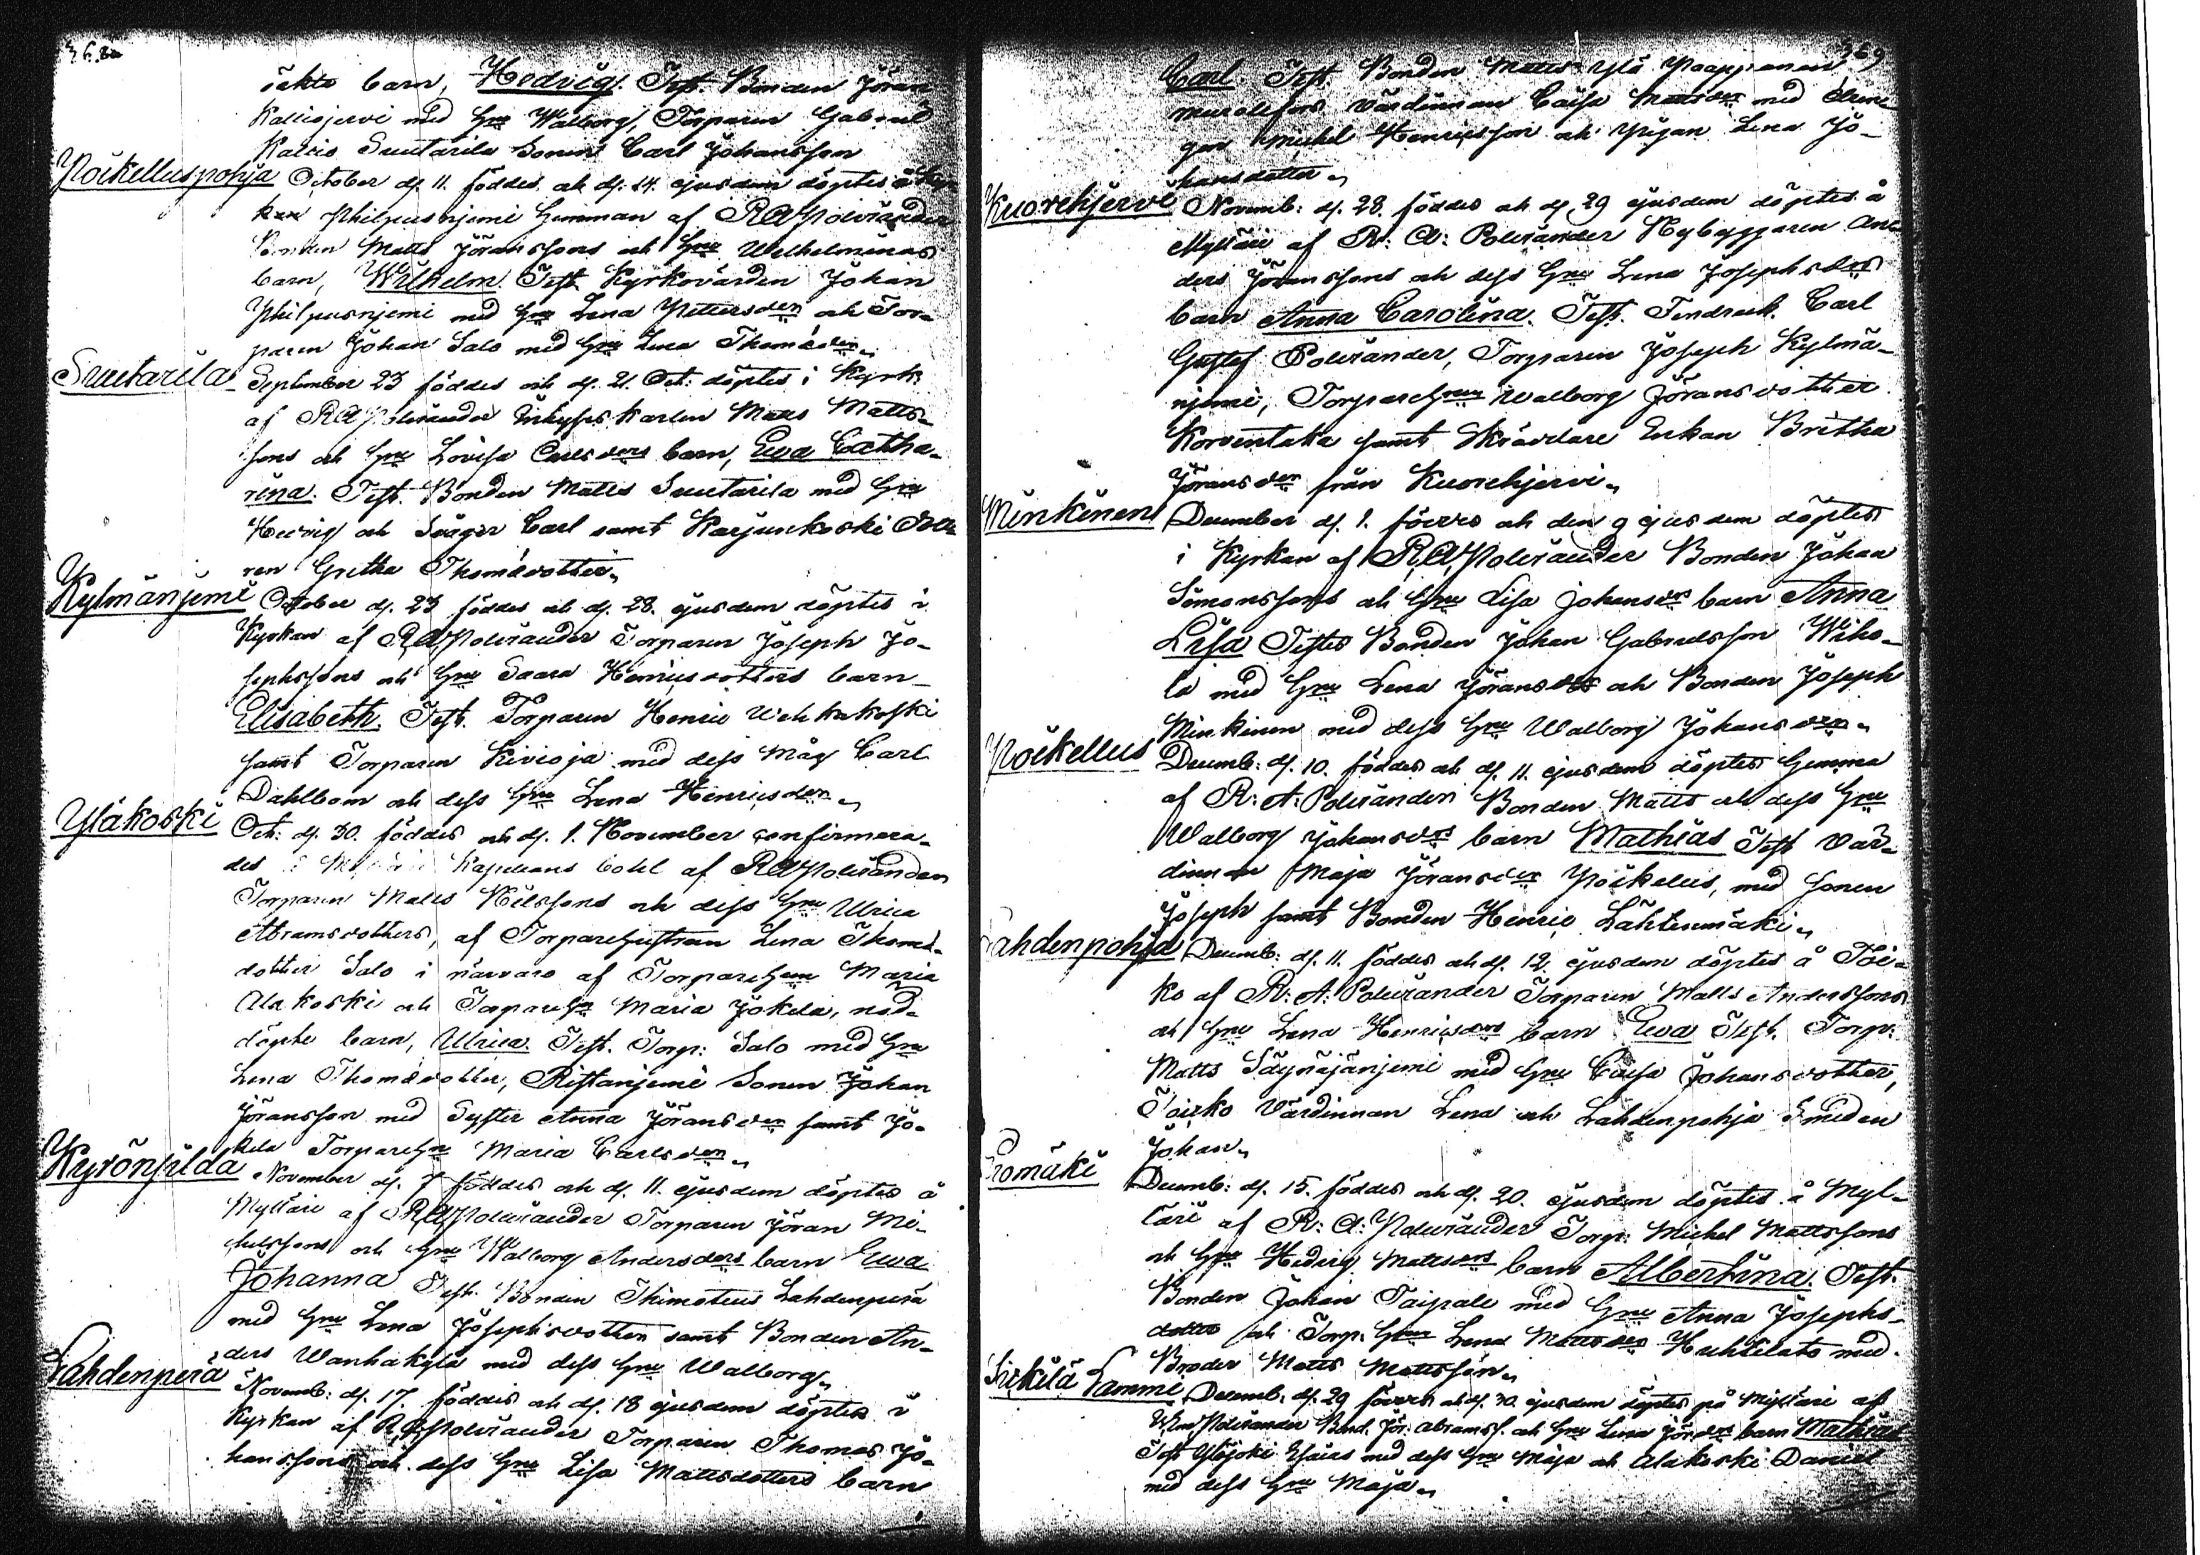 368
äkta barn, Hedvig. Test. Bonden Jöran
Kallisjervi med Hru Walborg, Torparen Gabriel
Kallio Suutarila Sonen Carl Johansson
Pöikelluspohja October d. 11. föddes och d. 14. ejusdem döptes å
Philpusnjemi Hemman af R A Polviander
Bonden Matts Jöranssons och Hru Wilhelminas
barn, Wilhelm. Test. Kyrkovärden Johan
Philpusnjemi med Hru Lena Pettersdr och Tor-
paren Johan Salo med Hru Lena Thomædr
Suutarila September 23 föddes och d. 21. Oct: döptes i Kyrk.
af R A Polviander Inhyses karlen Matts Matts-
sons och Hru Lovisa Carlsdrs barn, Eva Catha-
rina. Test. Bonden Matts Suutarila med Hru
Hedvig och Svåger Carl samt Karjunkoski
ran Gretha Thomædotter
Kylmänjemi October d. 23 föddes och d. 28. ejusdem döptes i
Kyrkan af R A Polviander Torparen Joseph Jo-
sephssons och Hru Saara Henricsdotters barn
Elisabeth. Test. Torparen Henric Wehkakoski
samt Torparen Kivioja med dess Måg Carl
Dahlbom och dess Hru Lena Henricsdr
Yläkoski Oct: d. 30. föddes och d. 1. November confirmera-
des Kapellans bohl af R A Polviander
Torparen Matts Nilssons och dess Hru Ulrica
Abramsdotters, af Torparehustrun Lena Thomæ-
dotter Salo i närvaro af Torpare Hrun Maria
Alakoski och Torpare Hru Maria Jokela, nöd-
döpte barn, Ulrica. Test. Torp: Salo med Hru
Lena Thomædotter, Ristanjemi Sonen Johan
Jöransson med Syster Anna Jöransdr samt Jo-
kela Torpare Hru Maria Carlsdr
Kyrönsilda November d. 7 föddes och d. 11. ejusdem döptes å
Myltäri af R A Polviander Torparen Jöran Mi-
chelssons och Hru Walborg Andersdrs barn Ewa
Johanna Test. Bonden Thimoteus Lahdenperä
med Hru Lena Josephsdotter samt Bonden An-
ders Wanhakylä med dess Hru Walborg
Lahdenperä Novemb: d. 17. föddes och d. 18 ejusdem döptes i
Kyrkan af R A Polviander Torparen Thomas Jo-
hanssons och dess Hru Lisa Mattsdotters barn
369
Carl. Test. Bonden Matts Ylä
Värdinnan Cajsa Mattsdr med
gen Michel Henricsson och Pigan Lena Jo-
hansdotter
Kuorehjervi Novemb: d. 28. föddes och d. 29 ejusdem döptes å
Myltäri af R: A: Polviander Nybyggaren An-
ders Jöranssons och dess Hru Lena Josephsdrs
barn Anna Carolina. Test. Carl
Gustaf Polviander, Torparen Joseph Kylmä-
njemi, Torpare Hrun Walborg Jöransdotter
Korventaka samt Skräddare Enkan Britha
Jöransdr från Kuorehjervi
Minkinen December d. 1. föddes och den 9 ejusdem döptes
i Kyrkan af R, A, Polviander Bonden Johan
Simonssons och Hru Lisa Johansdrs barn Anna
Lisa Testes Bonden Johan Gabrielsson Wiho-
la med Hru Lena Jöransdr och Bonden Joseph
Minkinen med dess Hru Walborg Johansdr
Pöikellus Decemb: d. 10. föddes och d. 11. ejusdem döptes hemma
af R: A: Polviander Bonden Matts och dess Hru
Walborg Johansdrs barn Mathias Test Vär-
dinnan Maja Jöransdr Pöikellus, med Sonen
Joseph samt Bonden Henric Lähtenmäki
Lahdenpohja Decemb: d. 11. föddes och d. 12. ejusdem döptes å Töi-
ko af R: A: Polviander Torparen Matts Anderssons
och Hru Lena Henricsdrs barn Ewa Test. Torp:
Matts Säynäjänjemi med Hru Cajsa Johansdotter,
Värdinnan Lena och Lahdenpohja Smeden
Johan
Decemb: d. 15. föddes och d. 20. ejusdem döptes å Myl-
täri af R: A: Polviander Torp: Michel Mattssons
och Hru Hedvig Mattsdrs barn Albertina. Test.
Bonden Johan Taipale med Hru Anna Josephs-
dotter och Torp: Hrun Lena Mattsdr Huhtilato med
Broder Matts Mattsson
Sirkilä Lammi Decemb. d. 29 föddes och d. 30. ejusdem döptes på Myltäri af
Polviander Bond. Jör: Abramss. och Hru Lena Jörsdrs barn Mathias
Test Ylijoki Esaias med dess Hru Maja och Alakoski Daniel
med dess Hru Maja